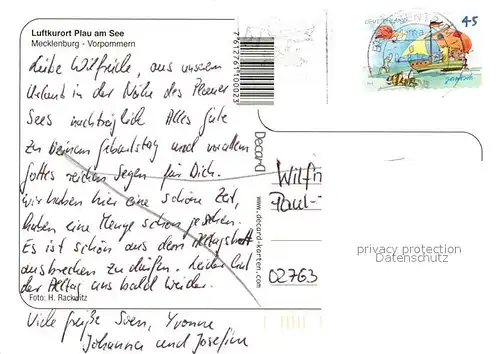 Luftkurort Plau am See
Mecklenburg - Vorpommern
Liebe Wilfriede, aus unserem
Urlaub in der Nähe des Plauer
Sees nachträglich Alles Gute
zu Deinem Geburtstag und vor allem
Gottes reichen Segen für Dich.
Wir haben hier eine schöne Zeit,
haben eine Menge schon gesehen.
Es ist schön aus dem Alltagstrott
ausbrechen zu dürfen. Leider hat
der Alltag uns bald wieder.
Foto: H. Rackwitz
Viele Grüße Sven, Yvonne
Johanna und Josefine
7612761100023
Decard
www.decard-karten.com
45
Wilfri
Paul-
02763
privacy protection
Datenschutz